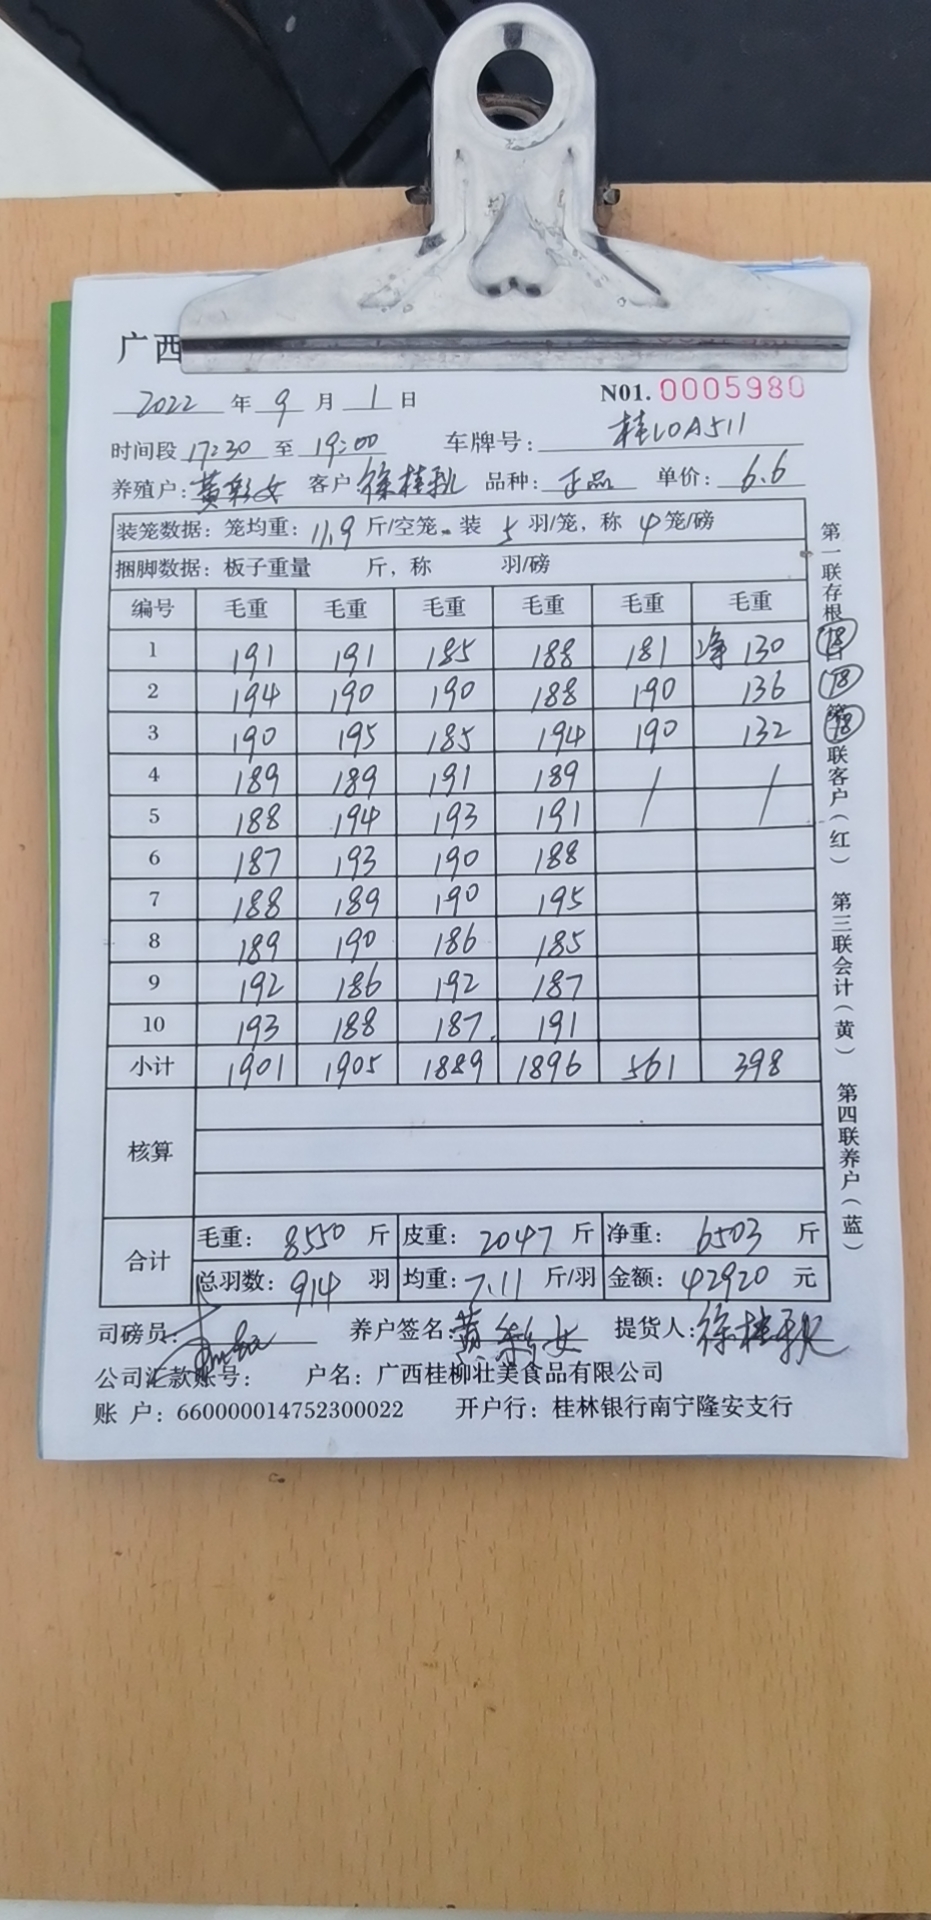 广西
2022 年 9 月 1 日 N01. 0005980
时间段 17:30 至 19:00 车牌号: 桂L0A511
养殖户: 黄彩女 客户 徐桂秋 品种: 正品 单价: 6.6
装笼数据: 笼均重: 11.9 斤/空笼。装 5 羽/笼, 称 4 笼/磅
捆脚数据: 板子重量 斤, 称 羽/磅
编号 毛重 毛重 毛重 毛重 毛重 毛重
1 191 191 185 188 181 净 130 18
2 194 190 190 188 190 136 18
3 190 195 185 194 190 132 18
4 189 189 191 189 / /
5 188 194 193 191
6 187 193 190 188
7 188 189 190 195
8 189 190 186 185
9 192 186 192 187
10 193 188 187 191
小计 1901 1905 1889 1896 561 398
核算
合计 毛重: 8550 斤 皮重: 2047 斤 净重: 6503 斤
总羽数: 914 羽 均重: 7.11 斤/羽 金额: 42920 元
司磅员: 养户签名: 黄彩女 提货人: 徐桂秋
公司汇款账号: 户名: 广西桂柳壮美食品有限公司
账 户: 660000014752300022 开户行: 桂林银行南宁隆安支行
第一联存根
联客户(红)
第三联会计(黄)
第四联养户(蓝)